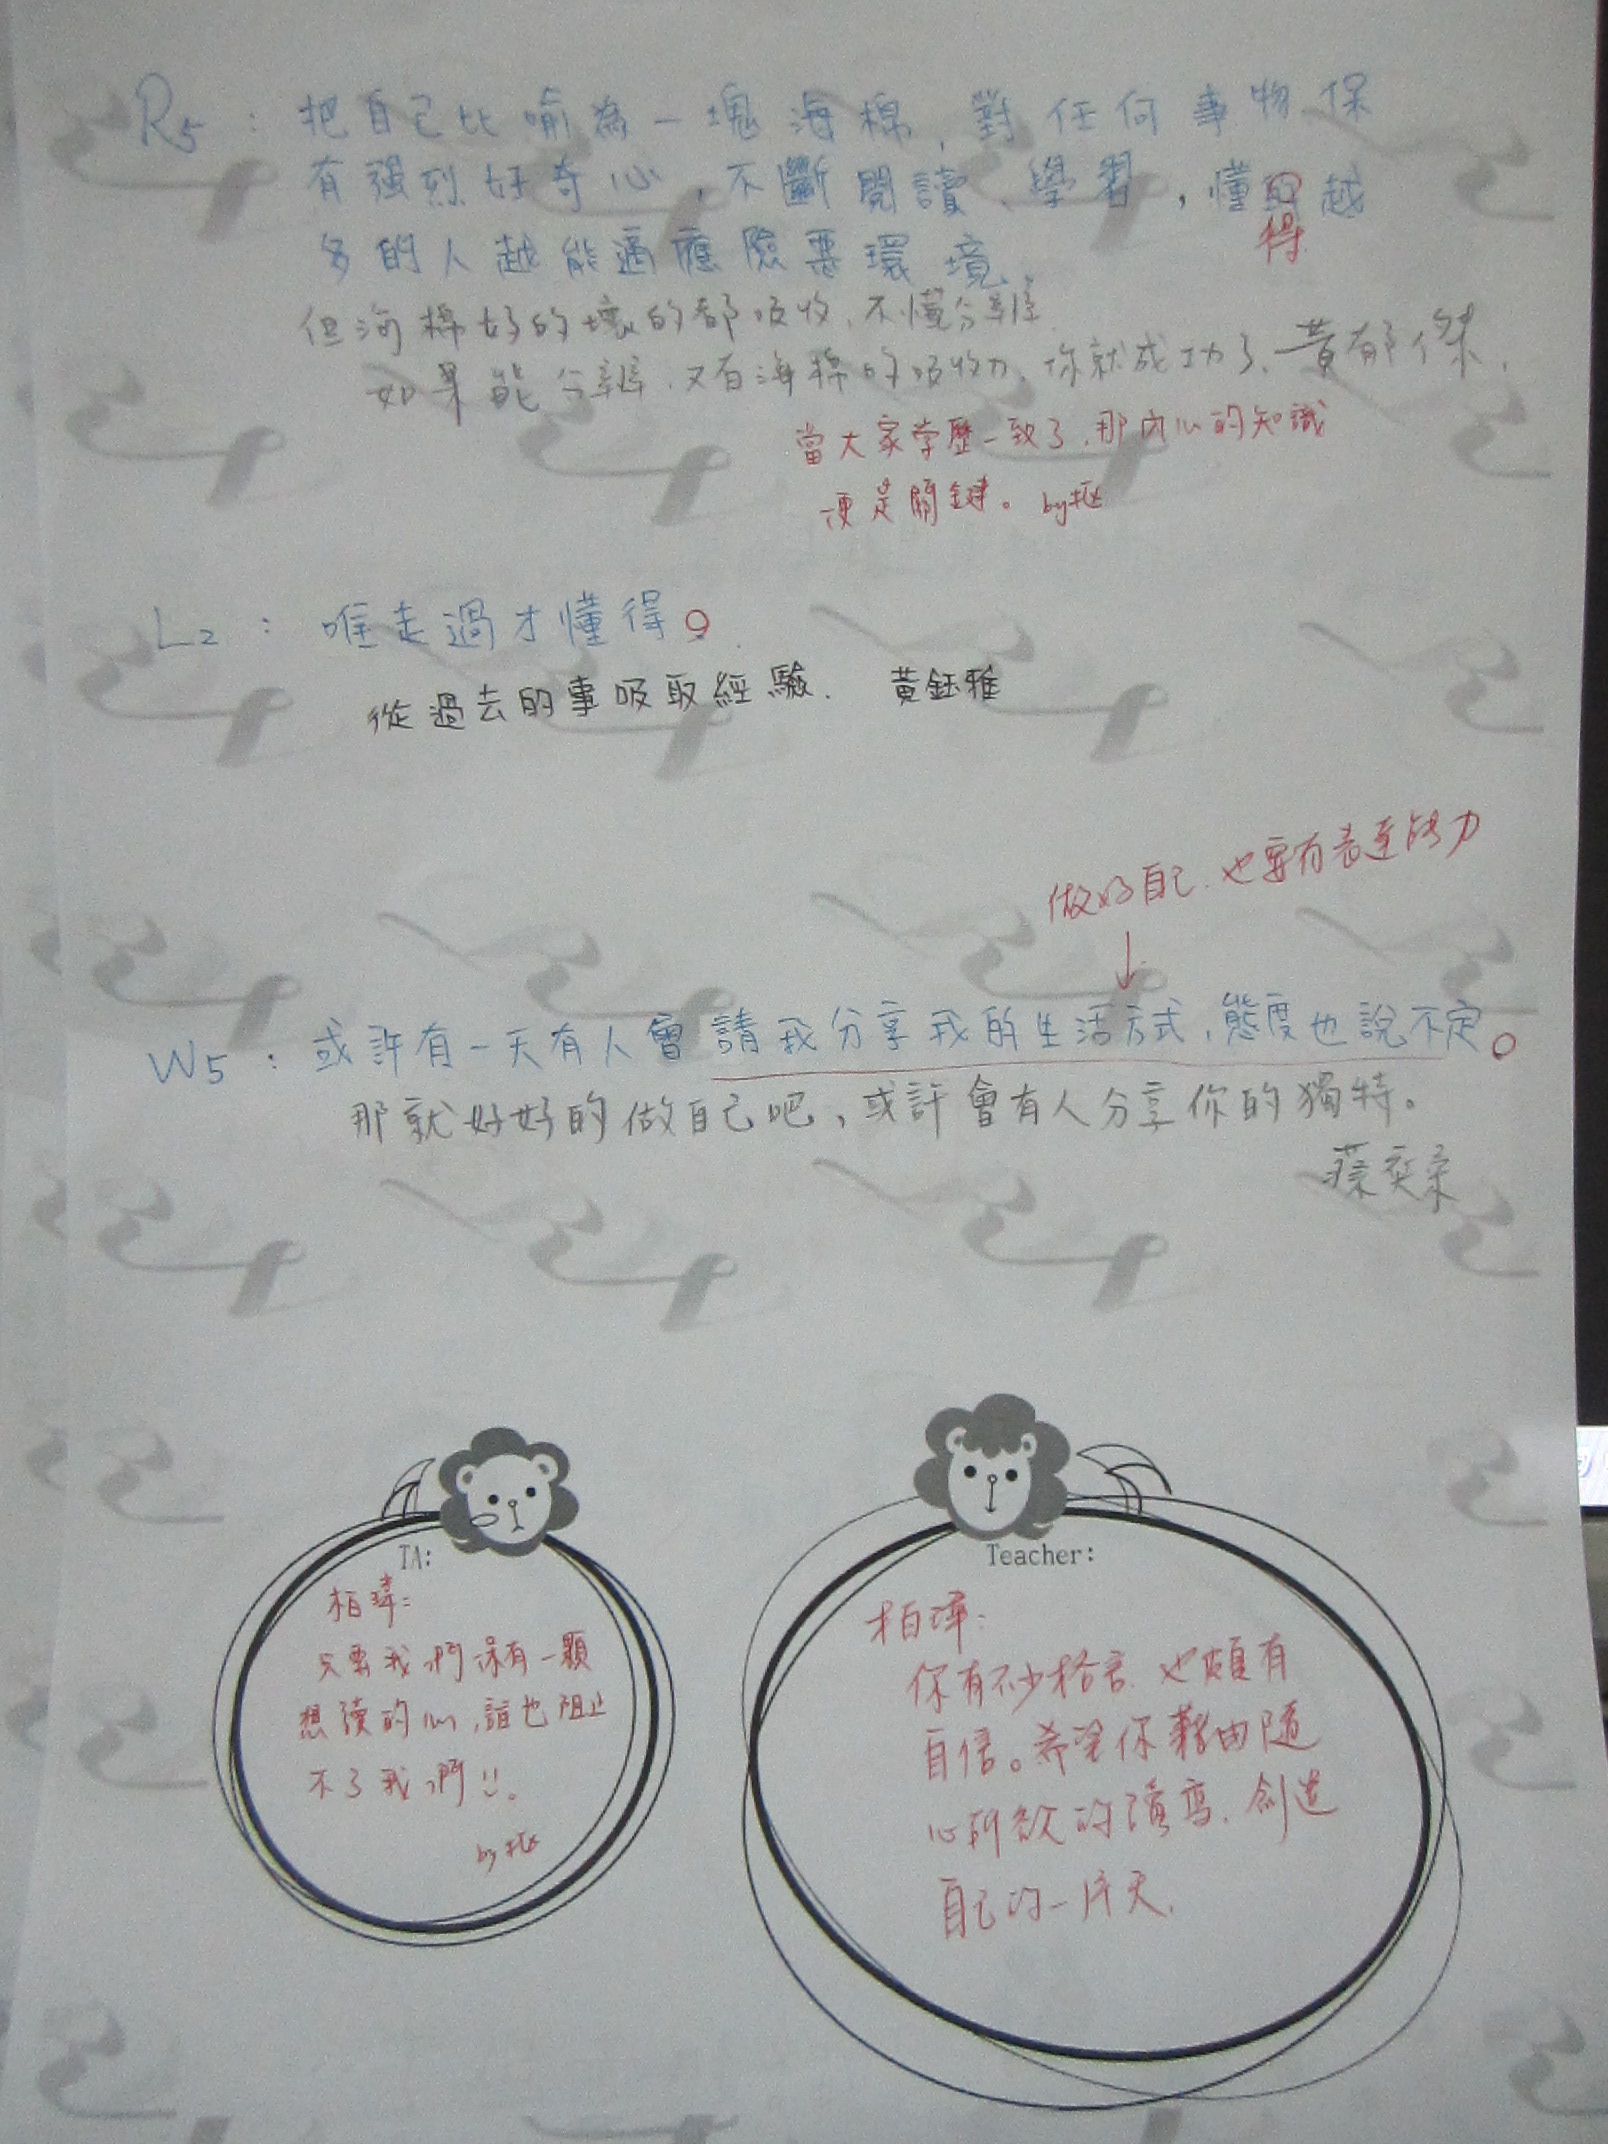 R5：把自己比喻為一塊海棉，對任何事物保
有強烈好奇心，不斷閱讀、學習，懂的越
得
多的人越能適應險惡環境。
但海棉好的壞的都吸收，不懂分辨。
如果能分辨，又有海棉的吸收力，你就成功了、黃郁傑．
當大家学歷一致了，那內心的知識
便是關鍵。by
L2：唯走過才懂得。
從過去的事吸取經驗． 黃鈺雅
做好自己．也要有表達能力
↓
W5：或許有一天有人會請我分享我的生活方式，態度也說不定。
那就好好的做自己吧，或許會有人分享你的獨特。
蔡奕柔
TA:
柏瑋：
只要我們保有一顆
想讀的心，誰也阻止
不了我們!!。
by
Teacher:
柏瑋：
你有不少格言．也頗有
自信。希望你藉由隨
心所欲的讀寫．創造
自己的一片天．